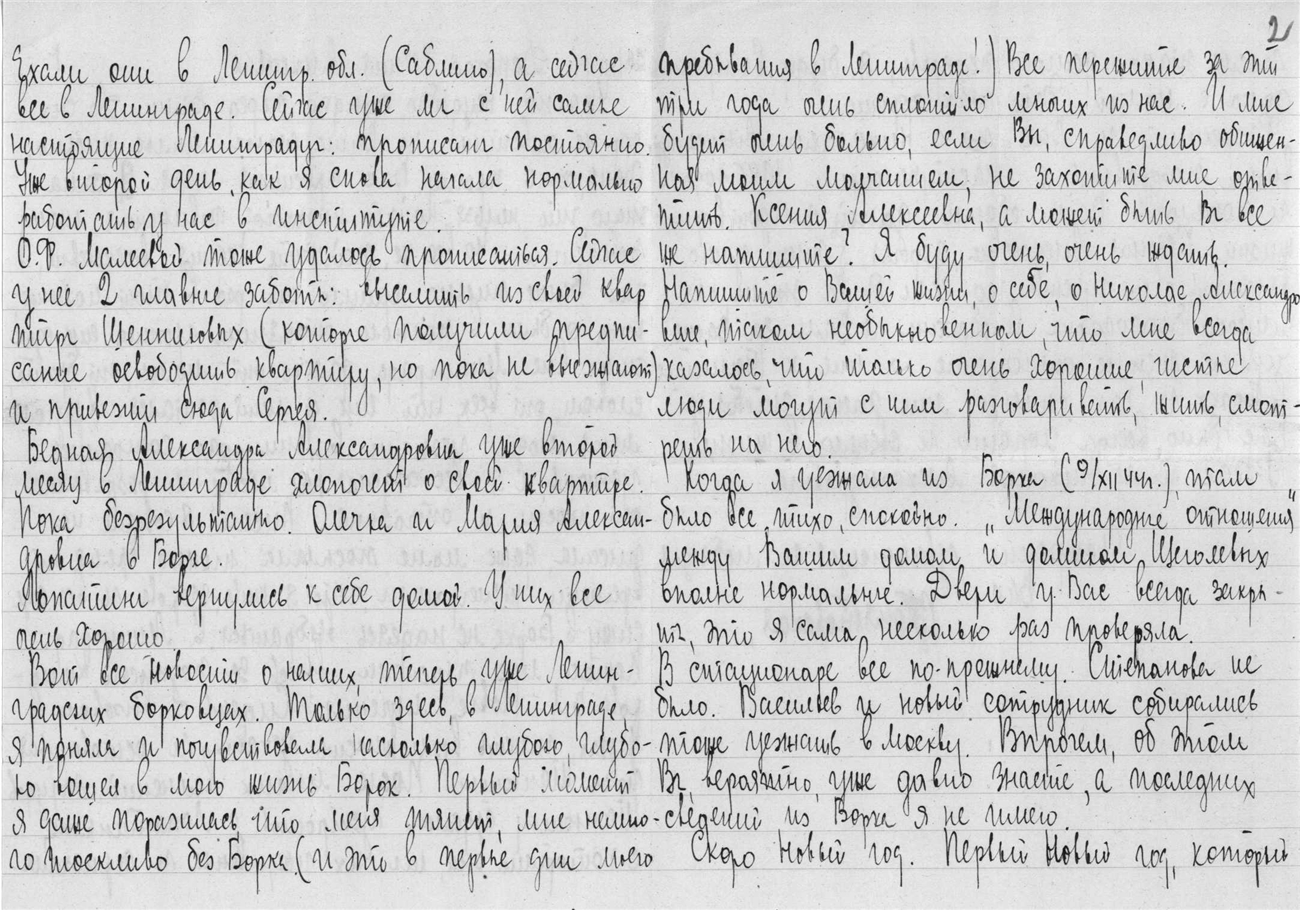 2
Ехали они в Ленингр. обл. (Саблино), а сейчас
все в Ленинграде. Сейчас уже мы с ней самые
настоящие Ленинградцы: прописаны постоянно.
Уже второй день, как я снова начала нормально
работать у нас в институте.
О.Ф. Малеевой тоже удалось прописаться. Сейчас
у нее 2 главные заботы: выселить из своей квар
тиры Щенниковых (которые получили предпи-
сание освободить квартиру, но пока не выезжают)
и привезти сюда Сергея.
Бедная Александра Александровна уже второй
месяц в Ленинграде хлопочет о своей квартире.
Пока безрезультатно. Олечка и Мария Алексан-
дровна в Борке.
Лопатины вернулись к себе домой. У них все
очень хорошо.
Вот все новости о наших, теперь уже Ленин-
градских борковцах. Только здесь, в Ленинграде,
я поняла и почувствовала насколько глубоко, глубо-
ко вошел в мою жизнь Борок. Первый момент
я даже поразилась, что меня тянет, мне немно-
го тоскливо без Борка. (и это в первые дни моего
пребывания в Ленинграде!) Все пережитые за эти
три года очень сплотило многих из нас. И мне
будет очень больно, если Вы, справедливо обижен-
ная моим молчанием, не захотите мне отве-
тить. Ксения Алексеевна, а может быть Вы все
ж напишите? Я буду очень, очень ждать.
Напишите о Вашей жизни, о себе, о Николае Александро
виче, таком необыкновенном, что мне всегда
казалось, что только очень хорошие, чистые
люди могут с ним разговаривать, жить, смот-
реть на него.
Когда я уезжала из Борка (9/XII 44г.), там
было все тихо, спокойно. "Международные отношения"
между Вашим домом и домиком Щеголевых
вполне нормальные. Двери у Вас всегда закры-
ты, это я сама несколько раз проверяла.
В стационаре все по-прежнему. Степанова не
было. Васильев и новый сотрудник собирались
тоже уезжать в Москву. Впрочем, об этом
Вы, вероятно, уже давно знаете, а последних
сведений из Борка я не имею.
Скоро Новый год. Первый Новый год, который